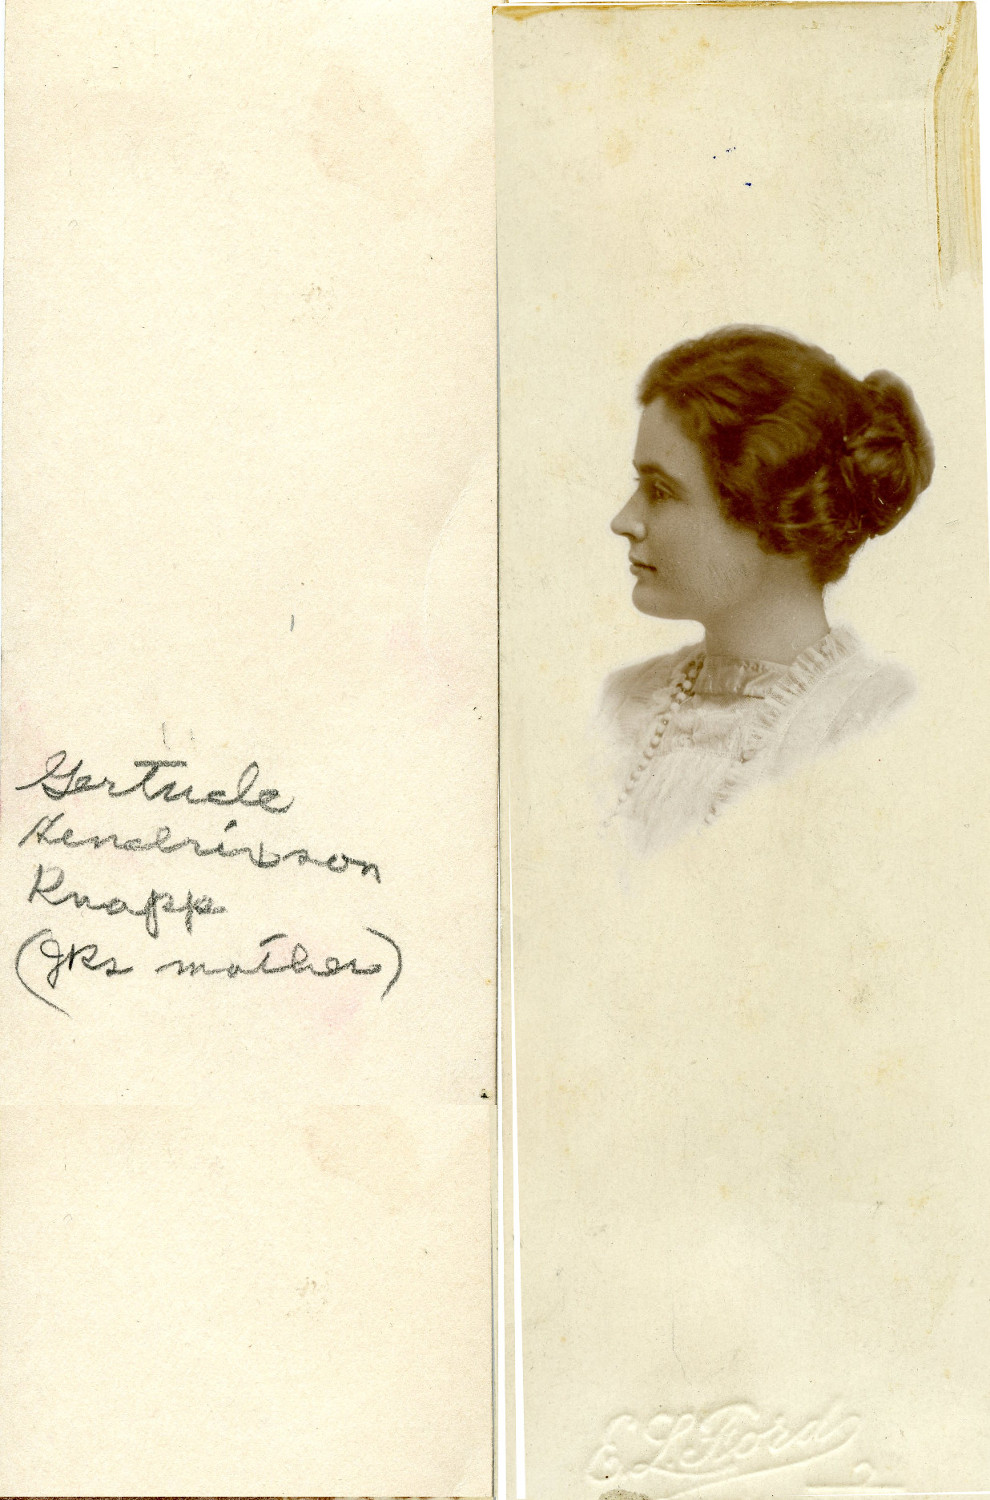 Gertrude
Hendrixson
Knapp
(JKs mother)
E. L. Ford